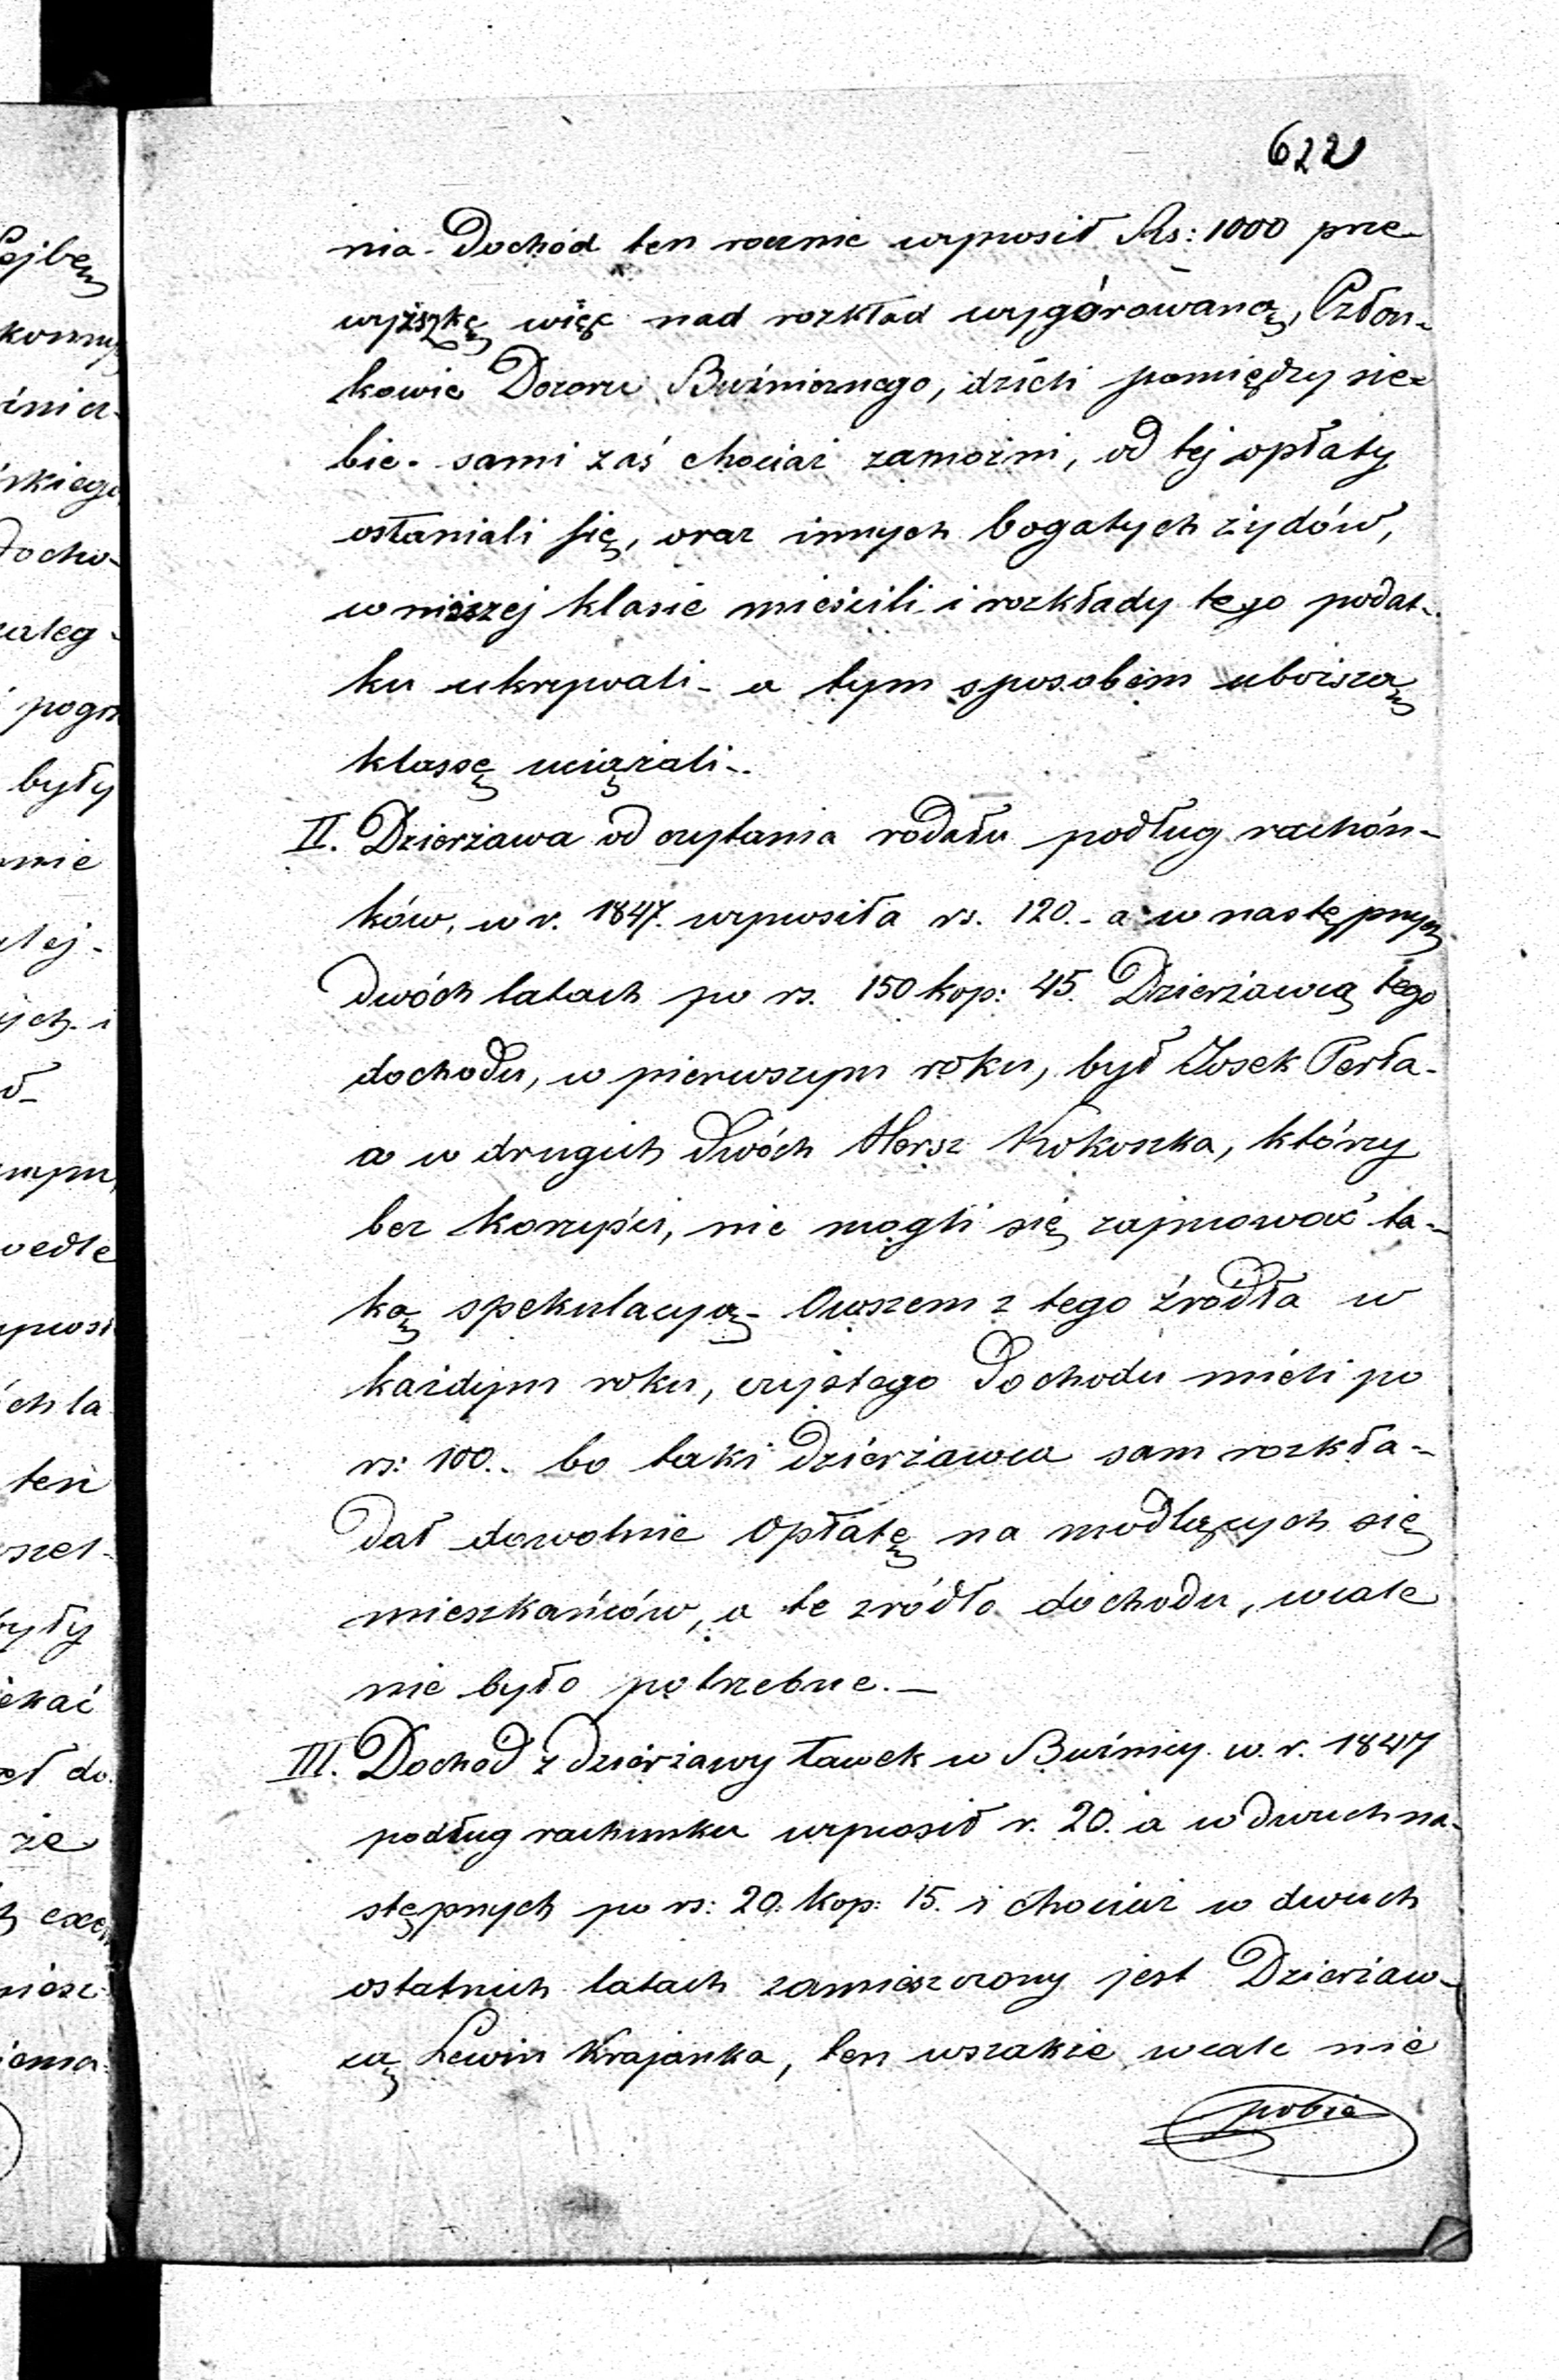 622
nia. Dochód ten rocznie wynosił Rs: 1000 prze-
wyższkę więc nad rozkład wygórowaną, Człon-
kowie Dozoru Bużnicznego, dzieli pomiędzy sie-
bie. sami zaś chociaż zamożni, od tej opłaty
osłaniali się, oraz innych bogatych żydów,
w niższej klasie mieścili i rozkłady tego podat-
ku ukrywali - a tym sposobem uboższą
klassę uciążali -.
II. Dzierżawa od czytania rodału podług rachón-
ków, w r. 1847. wynosiła rs. 120. - a w następnych
dwóch latach po rs. 150 kop: 45. Dzierżawcą tego
dochodu, w pierwszym roku, był Josek Perła -
a w drugich dwóch Hersz Kokoszka, którzy
bez korzyści, nie mogli się zajmować ta-
ką spekulacyą - Owszem z tego źródła w
każdym roku, czystego Dochodu mieli po
rs: 100.. bo taki Dzierżawca sam rozkła-
dał dowolnie Opłatę na modlących się
mieszkańców, a te zródło dochodu, wcale
nie było potrzebne. —
III. Dochod z Dzierżawy ławek w Bużnicy w. r. 1847
podług rachunku wynosił r. 20. a w dwuch na-
stępnych po rs: 20. kop: 15. i chociaż w dwuch
ostatnich latach zamieszczony jest Dzierżaw-
cą Lewin Krajanka, ten wszakże wcale nie
pobie
Lejbem
były
pogo
wedle
ch la
ten
były
ekać
do
że